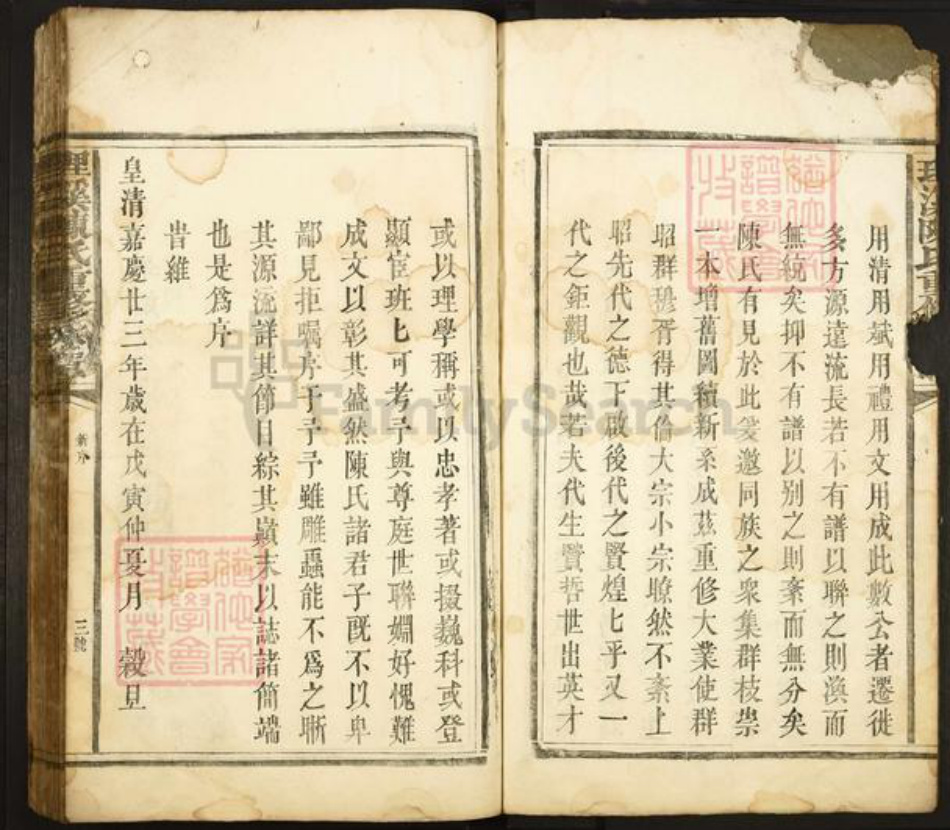 用清用斌用禮用文用成此數公者遷徙
多方源遠流長若不有譜以聯之則渙而
無統矣抑不有譜以別之則紊而無分矣
陳氏有見於此爰邀同族之衆集群枝崇
一本增舊圖積新系成茲重修大業使群
昭群穆胥得其倫大宗小宗瞭然不紊上
昭先代之德下啟後代之賢煌匕乎又一
代之鉅觀也哉若夫代生賢哲世出英才
或以理學稱或以忠孝著或掇巍科或登
顯宦班匕可考予與尊庭世聯婣好愧難
成文以彰其盛然陳氏諸君子旣不以卑
鄙見拒囑序于予予雖雕蟲能不爲之晰
其源流詳其節目綜其巔末以誌諸簡端
也是爲序
旹維
皇清嘉慶廿三年歲在戊寅仲夏月 穀旦
新序
三號
FamilySearch